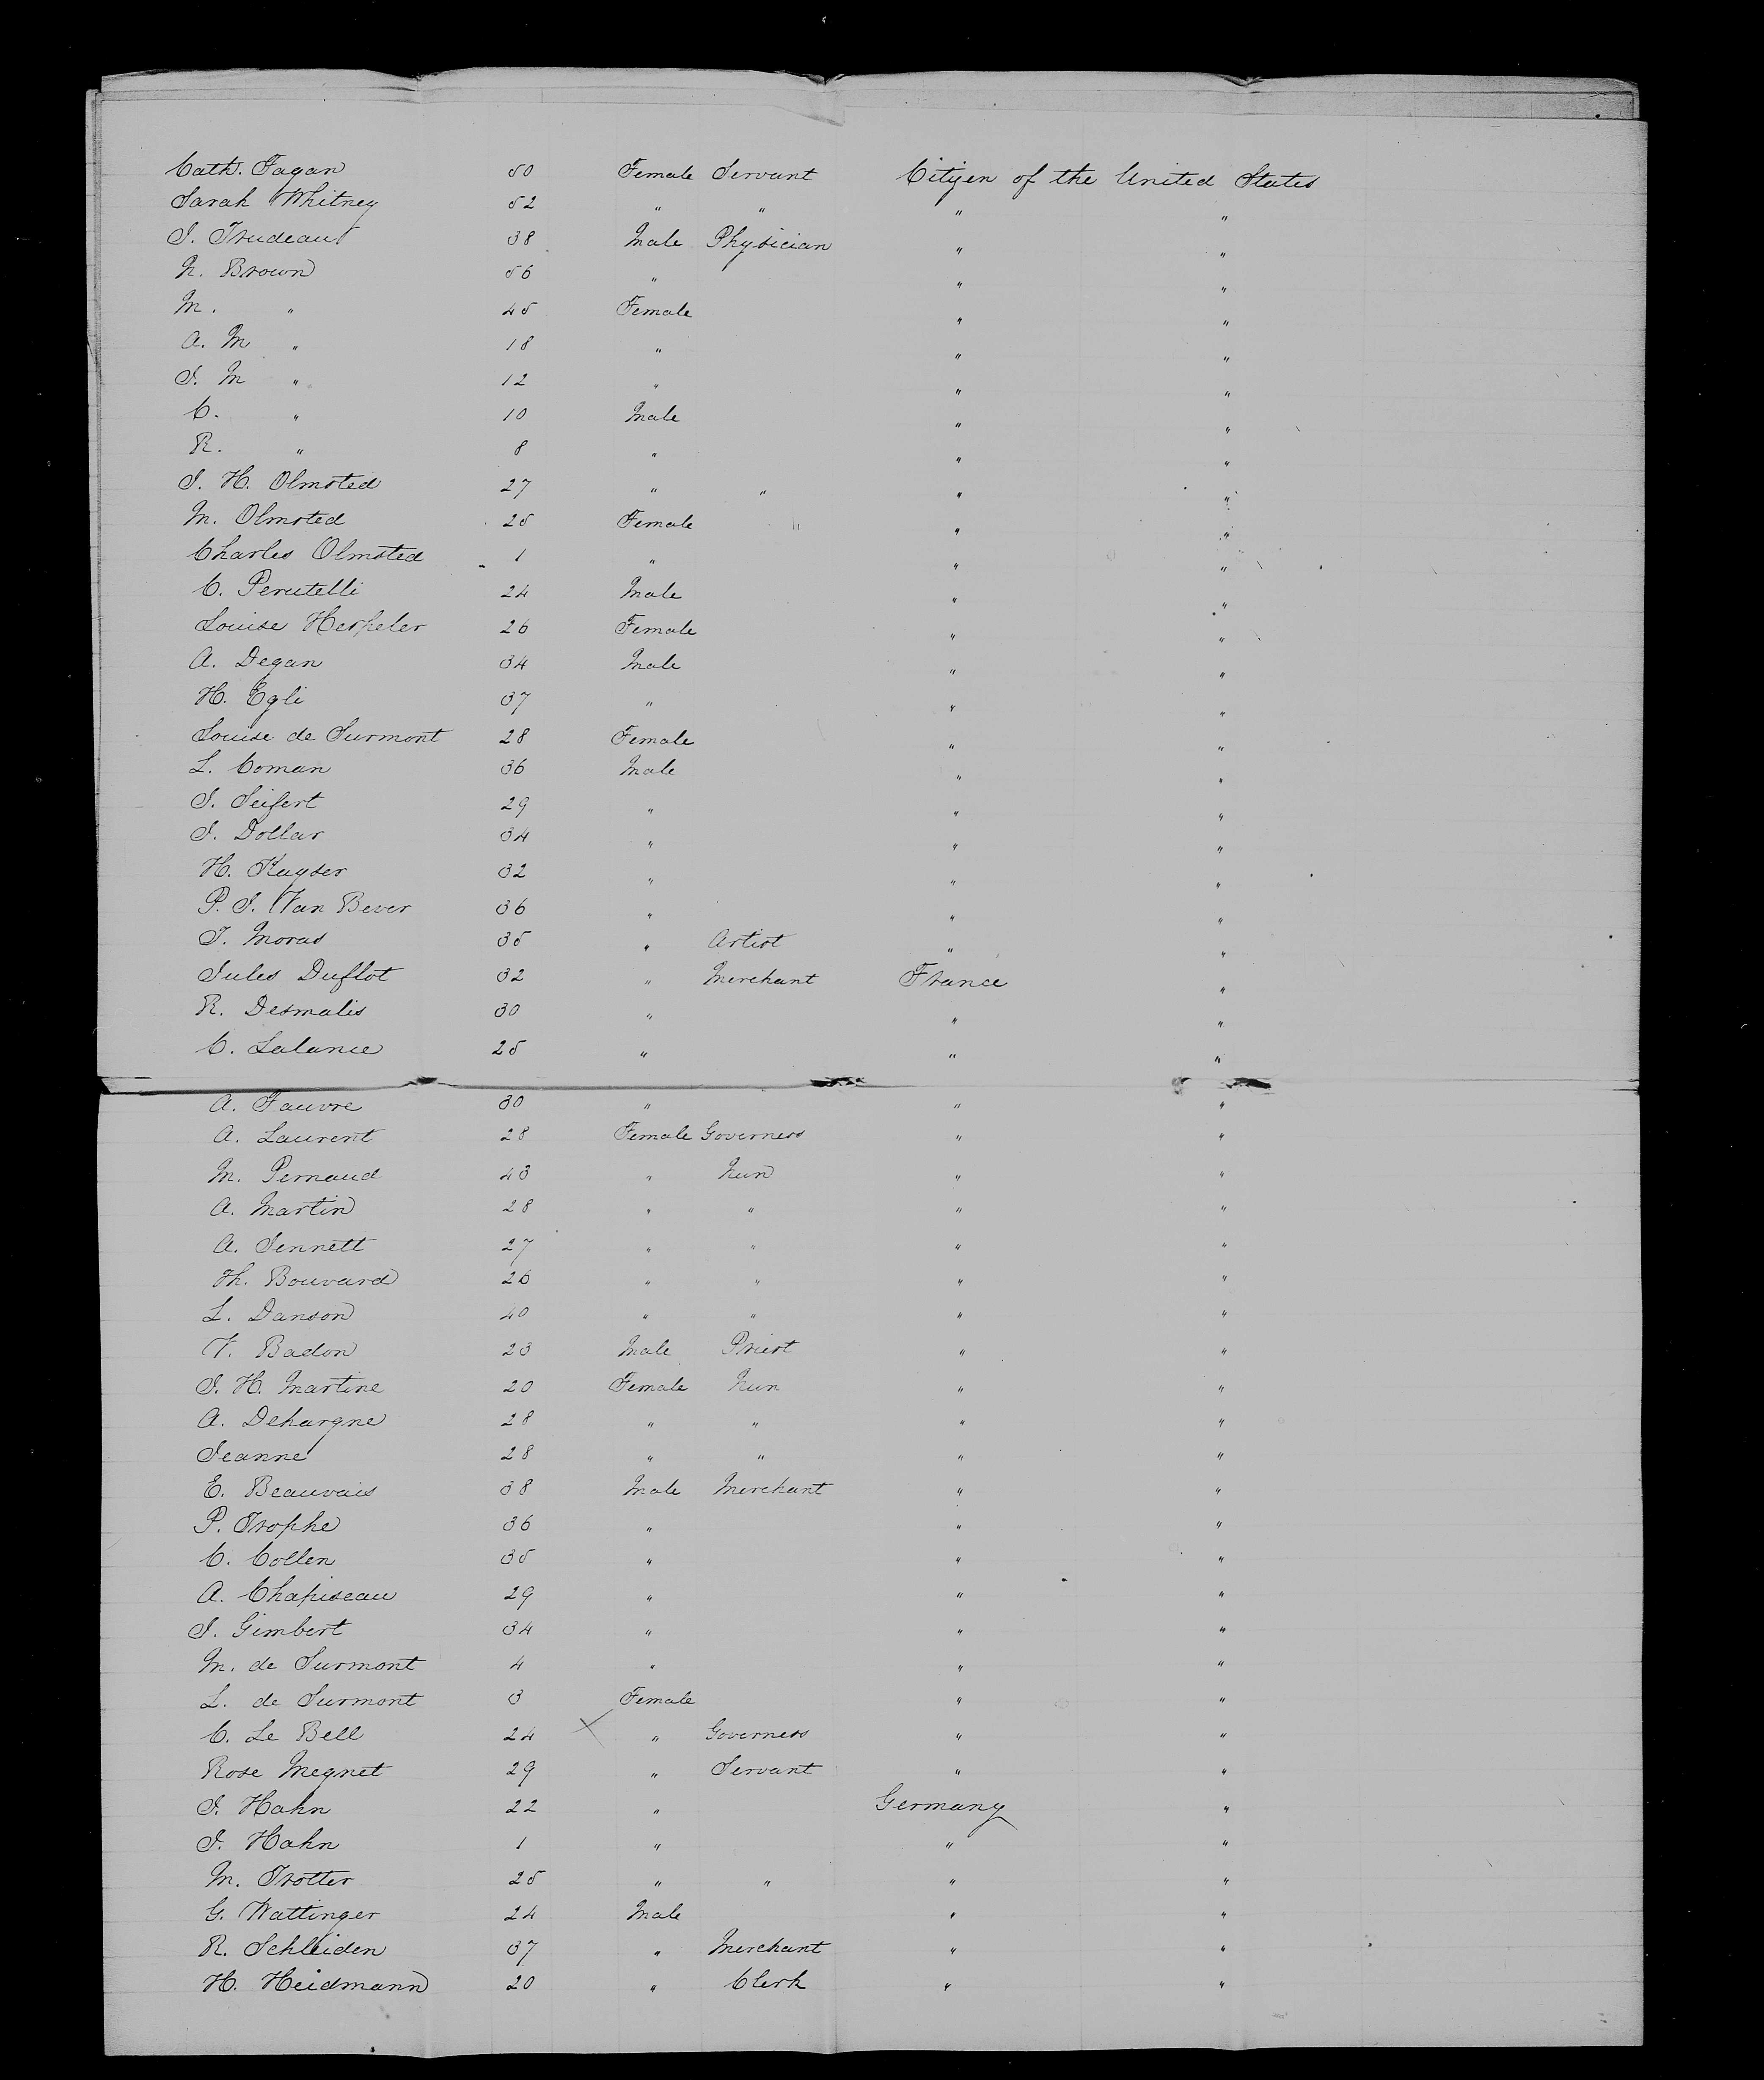 Cath. Fagan 50 Female Servant Citizen of the United States
Sarah Whitney 52 " " " "
J. Trudeau 38 Male Physician " "
N. Brown 56 " " "
M. " 45 Female " "
A. M " 18 " " "
J. M " 12 " " "
C. " 10 Male " "
R. " 8 " " "
J. H. Olmsted 27 " " " "
M. Olmsted 25 Female " "
Charles Olmsted 1 " " "
C. Perutelli 24 Male " "
Louise Herpeler 26 Female " "
A. Degan 34 Male " "
H. Egli 37 " " "
Louise de Surmont 28 Female " "
L. Coman 36 Male " "
J. Seifert 29 " " "
J. Dollar 34 " " "
H. Kayser 32 " " "
P. J. Van Bever 36 " " "
T. Moras 35 " Artist " "
Jules Duflot 32 " Merchant France "
R. Desmalis 30 " " "
C. Lalance 25 " " "
A. Fauvre 30 " " "
A. Laurent 28 Female Governess " "
M. Pernaud 43 " Nun " "
A. Martin 28 " " " "
A. Jennett 27 " " " "
Th. Bouvard 26 " " " "
L. Danson 40 " " " "
V. Badon 23 Male Priest " "
J. H. Martine 20 Female Nun " "
A. Dehargne 28 " " " "
Jeanne 28 " " " "
E. Beauvais 38 Male Merchant " "
P. Trophe 36 " " "
C. Collen 35 " " "
A. Chapiseau 29 " " "
J. Gimbert 34 " " "
M. de Surmont 4 " " "
L. de Surmont 3 Female " "
C. Le Bell 24 X " Governess " "
Rose Megnet 29 " Servant " "
J. Hahn 22 " Germany "
J. Hahn 1 " " "
M. Trotter 25 " " " "
G. Wattinger 24 Male " "
R. Schleiden 37 " Merchant " "
H. Heidmann 20 " Clerk " "